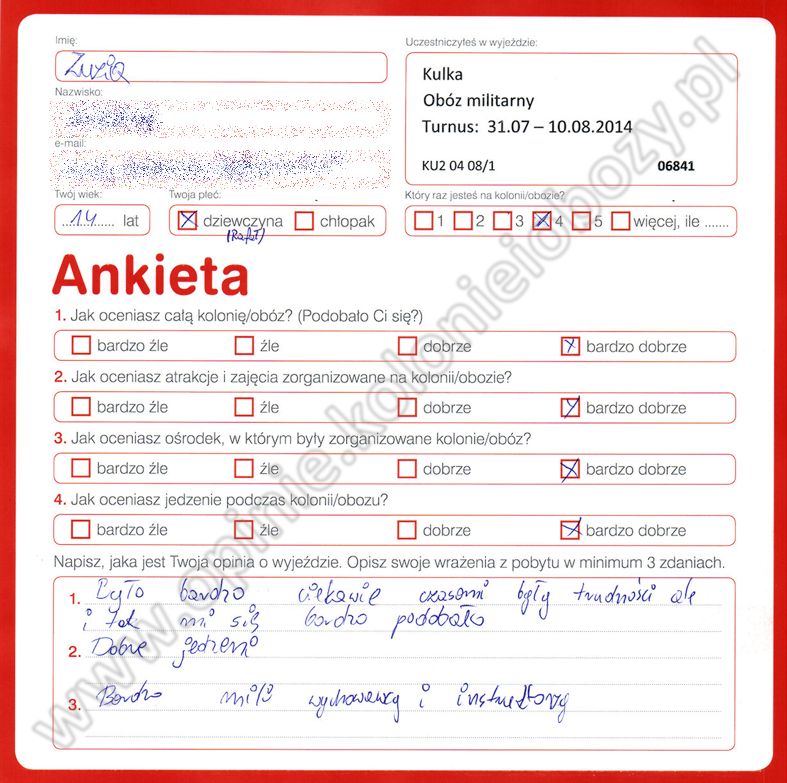 Imię:
Zuzia
Nazwisko:
e-mail:
Twój wiek:
14 lat
Twoja płeć:
dziewczyna chłopak
(Rafał)
Uczestniczyłeś w wyjeździe:
Kulka
Obóz militarny
Turnus: 31.07 – 10.08.2014
KU2 04 08/1 06841
Który raz jesteś na kolonii/obozie?
1 2 3 4 5 więcej, ile .......
Ankieta
1. Jak oceniasz całą kolonię/obóz? (Podobało Ci się?)
bardzo źle źle dobrze bardzo dobrze
2. Jak oceniasz atrakcje i zajęcia zorganizowane na kolonii/obozie?
bardzo źle źle dobrze bardzo dobrze
3. Jak oceniasz ośrodek, w którym były zorganizowane kolonie/obóz?
bardzo źle źle dobrze bardzo dobrze
4. Jak oceniasz jedzenie podczas kolonii/obozu?
bardzo źle źle dobrze bardzo dobrze
Napisz, jaka jest Twoja opinia o wyjeździe. Opisz swoje wrażenia z pobytu w minimum 3 zdaniach.
1. Było bardzo ciekawie czasami były trudności ale
i tak mi się bardzo podobało
2. Dobre jedzenie
3. Bardzo mili wychowawcy i instruktorzy
www.opinie.kolonieiobozy.pl